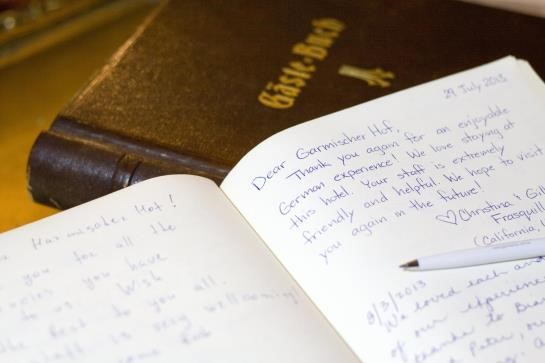 Gäste-Buch
29 July, 2013
Dear Garmischer Hof,
Thank you again for an enjoyable
German experience! We love staying at
this hotel. Your staff is extremely
friendly and helpful. We hope to visit
you again in the future!
♡ Christina & Gill
Frasquill
(California,
8/3/2013
We loved each and
of our experience
Peter, our
Garmischer Hof!
you for all the
you have
to us. Wish
the best to you all.
staff is very wellcoming!